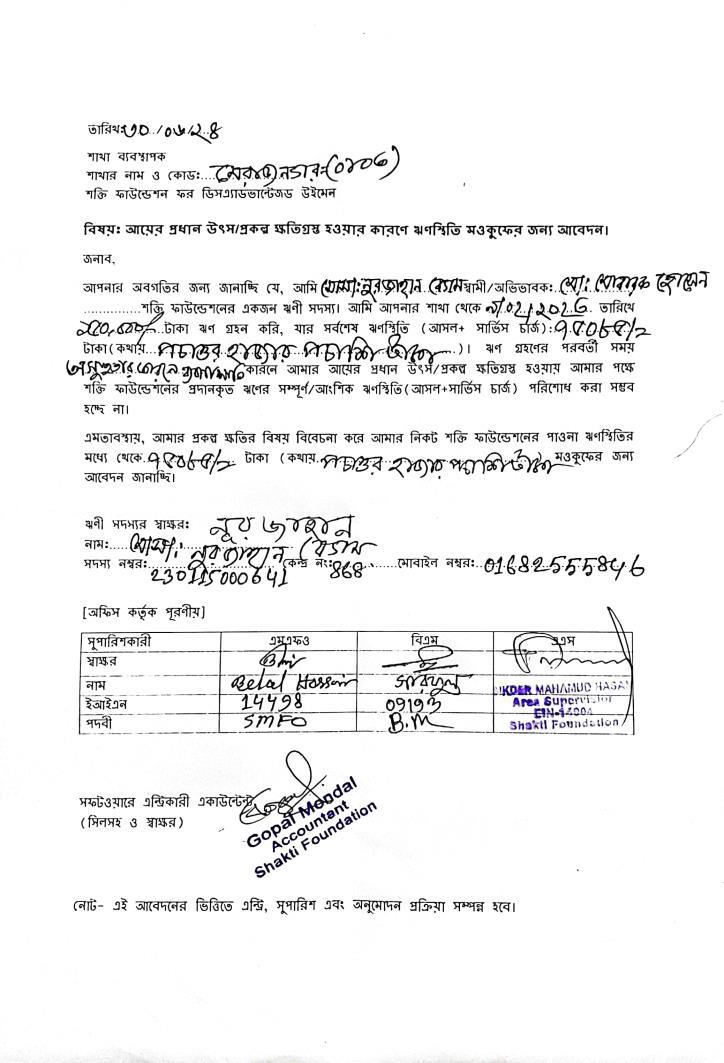 তারিখঃ ৩০/০৬/২৪
শাখা ব্যবস্থাপক
শাখার নাম ও কোড:
শক্তি ফাউন্ডেশন ফর ডিসএ্যাডভান্টেজড উইমেন
বিষয়: আয়ের প্রধান উৎস/প্রকল্প ক্ষতিগ্রস্থ হওয়ার কারণে ঋণস্থিতি মওকুফের জন্য আবেদন।
জনাব,
আপনার অবগতির জন্য জানাচ্ছি যে, আমি মোসা: নুরজাহান বেগম স্বামী/অভিভাবক: মো: মোবারক হোসেন
শক্তি ফাউন্ডেশনের একজন ঋণী সদস্য। আমি আপনার শাখা থেকে তারিখে
টাকা ঋণ গ্রহন করি, যার সর্বশেষ ঋণস্থিতি (আসল+ সার্ভিস চার্জ): ৭৫০৮৫/=
টাকা(কথায় পচাত্তর হাজার পচাশি টাকা)। ঋণ গ্রহণের পরবর্তী সময়
কারনে আমার আয়ের প্রধান উৎস/প্রকল্প ক্ষতিগ্রস্থ হওয়ায় আমার পক্ষে
শক্তি ফাউন্ডেশনের প্রদানকৃত ঋণের সম্পূর্ণ/আংশিক ঋণস্থিতি(আসল+সার্ভিস চার্জ) পরিশোধ করা সম্ভব
হচ্ছে না।
এমতাবস্থায়, আমার প্রকল্প ক্ষতির বিষয় বিবেচনা করে আমার নিকট শক্তি ফাউন্ডেশনের পাওনা ঋণস্থিতির
মধ্যে থেকে ৭৫০৮৫/= টাকা (কথায় পচাত্তর হাজার পচাশি টাকা মওকুফের জন্য
আবেদন জানাচ্ছি।
ঋণী সদস্যর স্বাক্ষর: নুর জাহান
নাম: মোসা: নুরজাহান বেগম
সদস্য নম্বর: 230115000641 কেন্দ্র নং: 868 মোবাইল নম্বর: 01682555846
[অফিস কর্তৃক পূরণীয়]
সুপারিশকারী এমএফও বিএম এএস
স্বাক্ষর
নাম Belal Hossain
ইআইএন 14498 09193
পদবী SMFO B.M
SIKDER MAHAMUD HASAN
Area Supervisor
EIN-14004
Shakti Foundation
সফটওয়ারে এন্ট্রিকারী একাউন্টেন্ট
(সিলসহ ও স্বাক্ষর)
Gopal Mondal
Accountant
Shakti Foundation
নোট- এই আবেদনের ভিত্তিতে এন্ট্রি, সুপারিশ এবং অনুমোদন প্রক্রিয়া সম্পন্ন হবে।